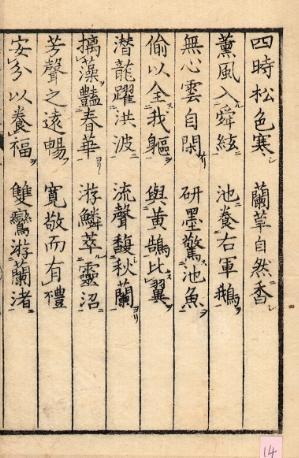 四時松色寒　蘭草自然香
薫風入舜絃　池養右軍鵝
無心雲自閑　研墨驚池魚
偷以全我軀　與黄鵠比翼
潜龍躍洪波　流聲馥秋蘭
摛藻豔春華　游鱗萃靈沼
芳聲之遠暢　寛敬而有禮
安分以養福　雙鸞游蘭渚
14